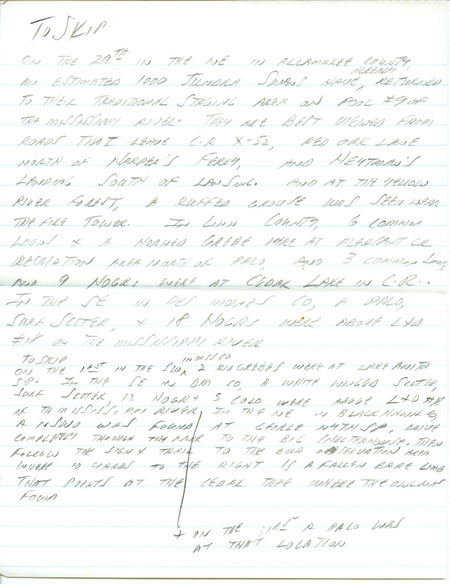 To SKIP.
ON THE 29TH IN THE NE IN ALLAMAKEE COUNTY,
AN ESTIMATED 1000 TUNDRA SWANS HAVE ALREADY RETURNED
TO THEIR TRADITIONAL STAGING AREA ON POOL #9 OF
THE MISSISSIPPI RIVER. THEY ARE BEST VIEWED FROM
ROADS THAT LEAVE C.R X-52, RED OAK LANE
NORTH OF HARPER'S FERRY, AND HEYTMAN'S
LANDING SOUTH OF LANSING. AND AT THE YELLOW
RIVER FOREST, A RUFFED GROUSE WAS SEEN NEAR
THE FIRE TOWER. IN LINN COUNTY, 6 COMMON
LOONS & A HORNED GREBE WERE AT PLEASANT CR
RECREATION AREA NORTH OF PALO, AND 3 COMMON LOONS
AND 9 HOGRS WERE AT CEDAR LAKE IN C.R..
IN THE SE IN DES MOINES CO, A PALO,
SURF SCOTER, & 18 HOGRS WERE ABOVE L+D
#18 ON THE MISSISSIPPI RIVER
TO SKIP
ON THE 31ST IN THE SW, IN CASS CO 2 REGREBES WERE AT LAKE ANITA
S.P. IN THE SE IN DM CO, A WHITE WINGED SCOTER,
SURF SCOTER, 12 HOGR & 5 COLO WERE ABOVE L+D #18
OF THE MISSISSIPPI RIVER. IN THE NE IN BLACK HAWK CO
A NSWO WAS FOUND AT GEORGE WYTH SP, DRIVE
COMPLETELY THROUGH THE PARK TO THE BIG SHELTERHOUSE. THEN
FOLLOW THE SIGN & TRAIL TO THE BIRD OBSERVATION AREA
WHERE 10 YARDS TO THE RIGHT IS A FALLEN BARE LIMB
THAT POINTS AT THE CEDAR TREE WHERE THE OWL WAS
FOUND
+ ON THE 31ST A PALO WAS
AT THAT LOCATION